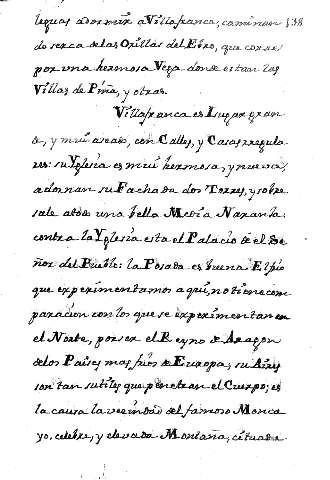 leguas a dormir a Villafranca, caminan 538
do serca de las Orillas del Ebro, que corre
por una hermosa Vega donde estan las
Villas de Pina, y otras.
Villafranca es Lugar gran
de, y mui aseado, con Calles, y Casas regula
res: su Yglesia es mui hermosa, y nueva,
adornan su Fachada dos Torres, y sobre
sale a toda una bella Media Naranja:
contra la Yglesia esta el Palacio de el Se
ñor del Pueblo: la Posada es buena. El frio
que experimentamos aqui, no tiene com
paracion con los que se experimentan en
el Norte, por ser el Reyno de Aragon
de los Paises mas frios de Europa, su Ayre
son tan sutiles que penetran el Cuerpo; es
la causa la vecindad del famoso Monca
yo, celebre, y elevada Montaña, cituada